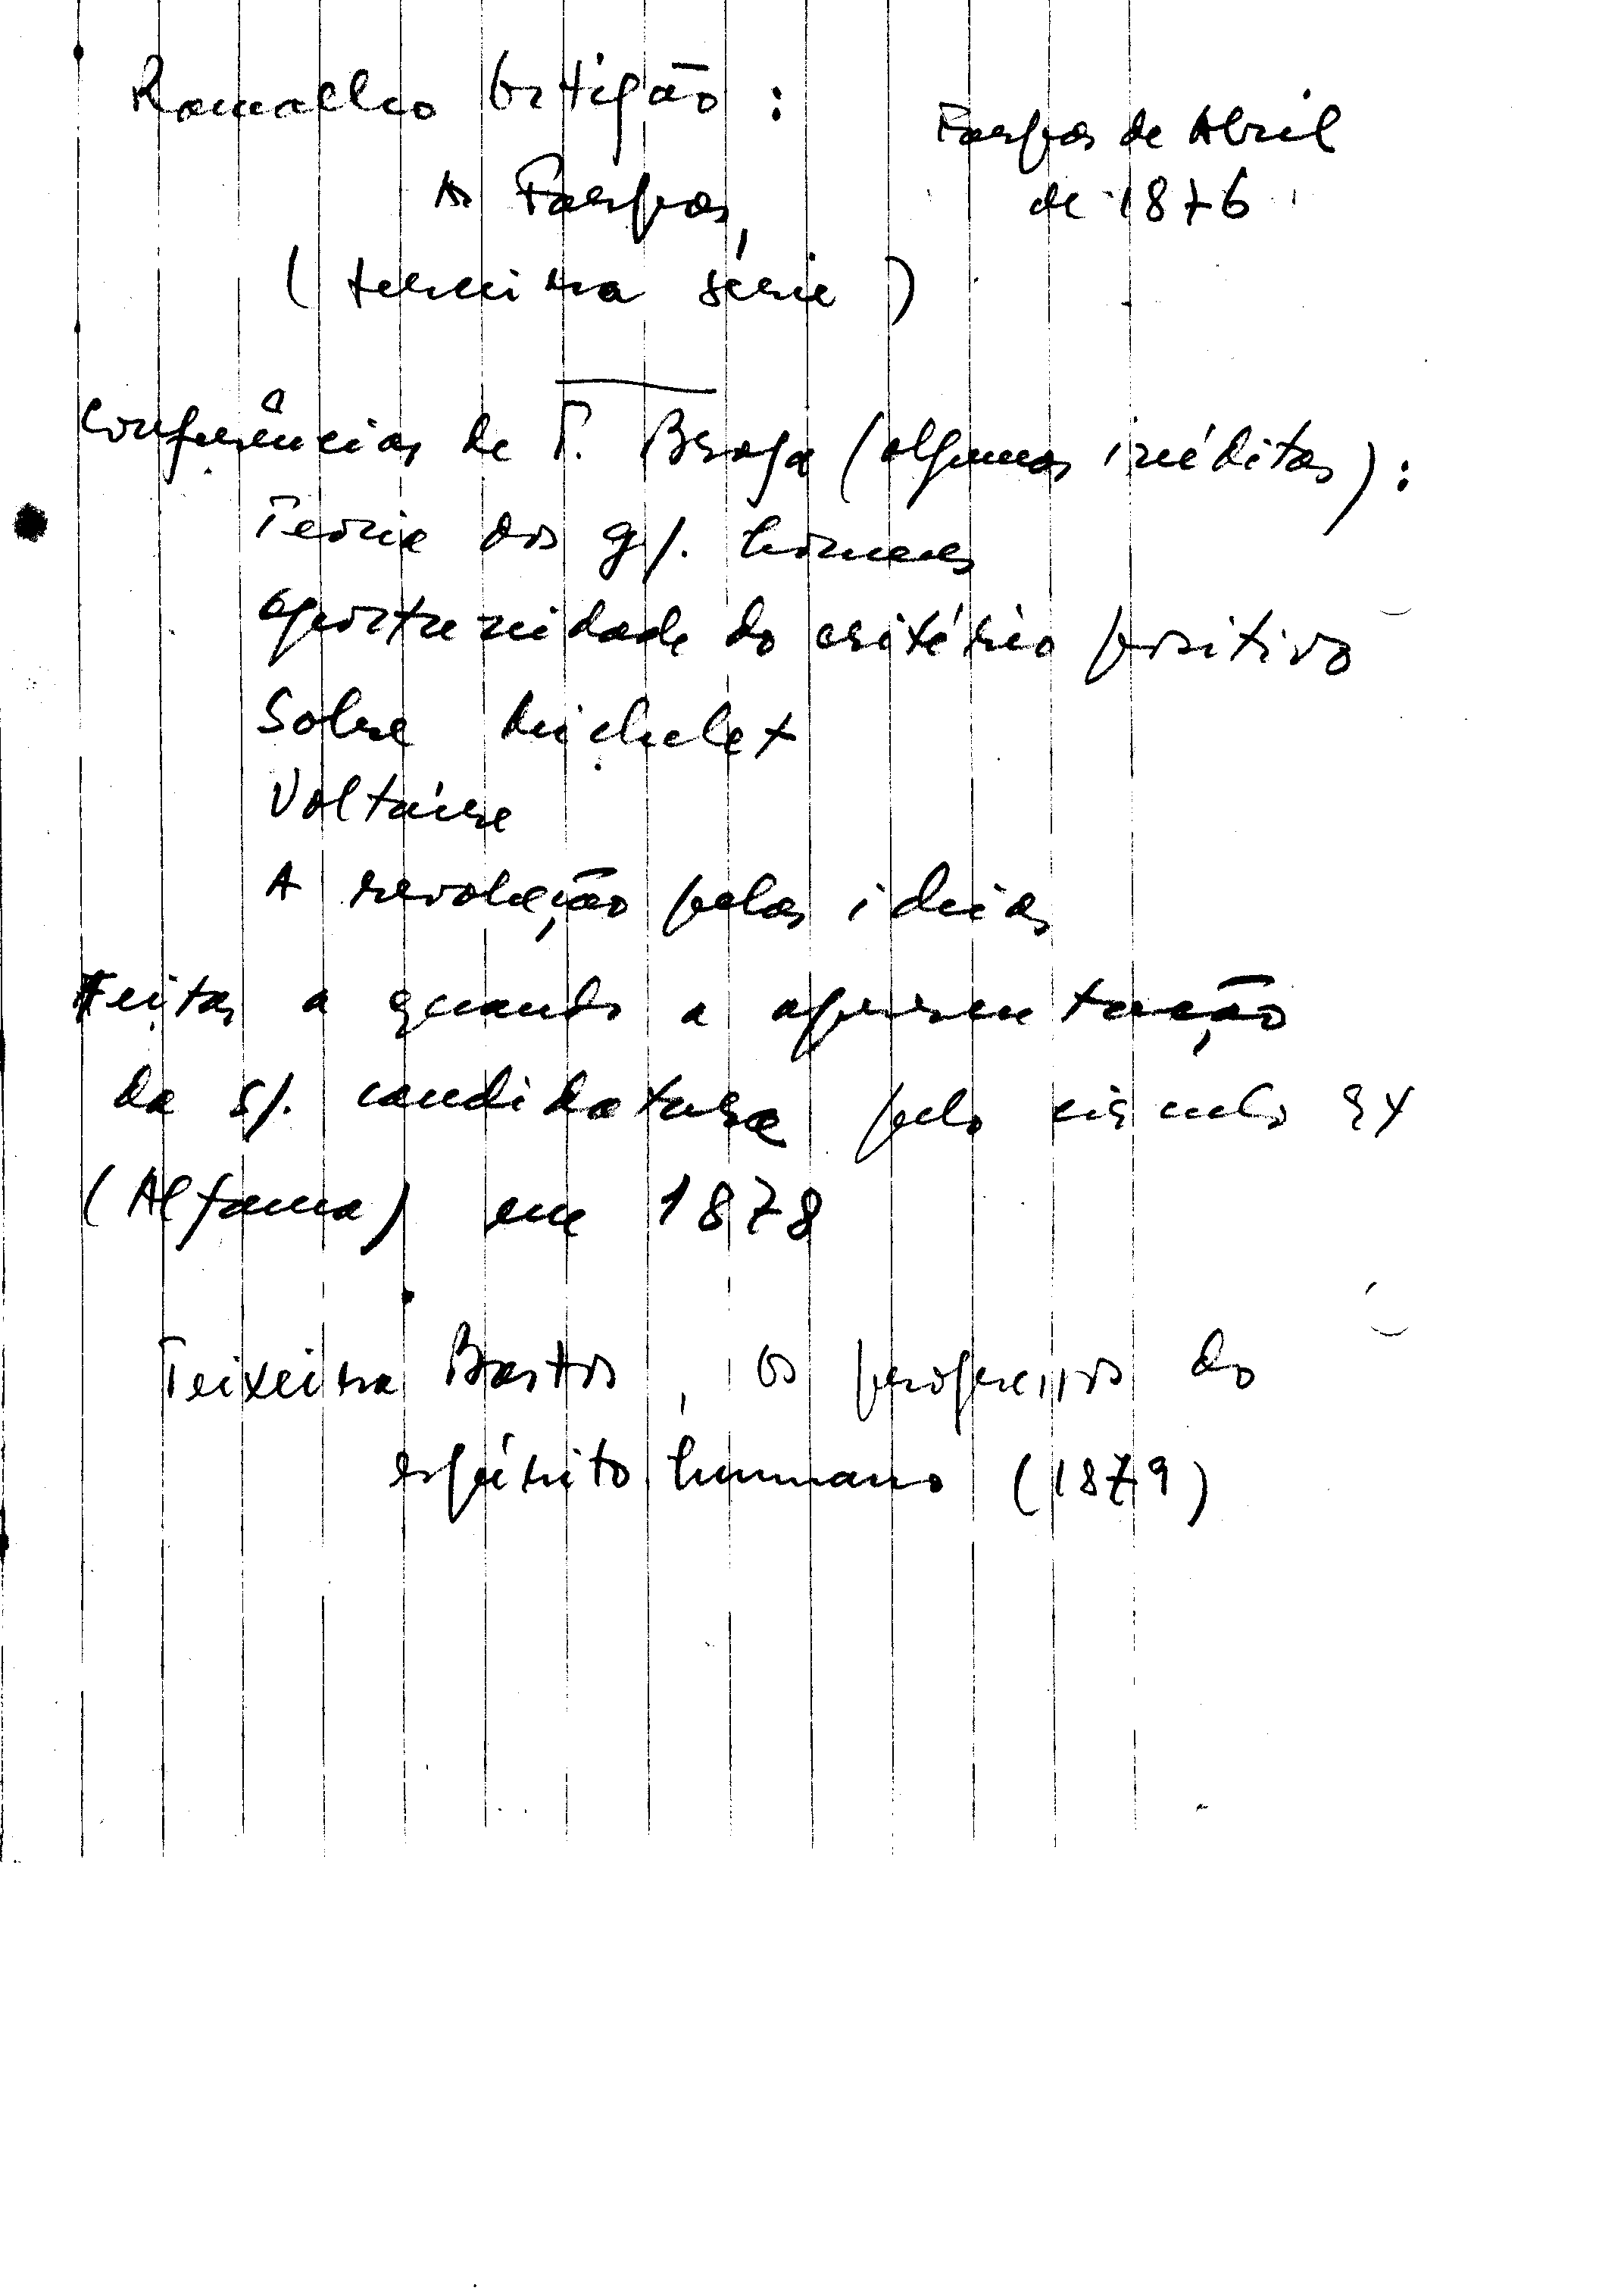 Ramalho Ortigão :
Farpas de Abril
de 1876
As Farpas,
( terceira série )
Conferências de T. Braga (algumas inéditas) :
Teoria dos g/. homens
oportunidade do critério positivo
Sobre Michelet
Voltaire
A revolução pelas ideias
Feitas a quando a apresentação
da s/. candidatura pelo círculo 94
(Alfama) em 1878
Teixeira Bastos, Os progressos do
espírito humano (1879)